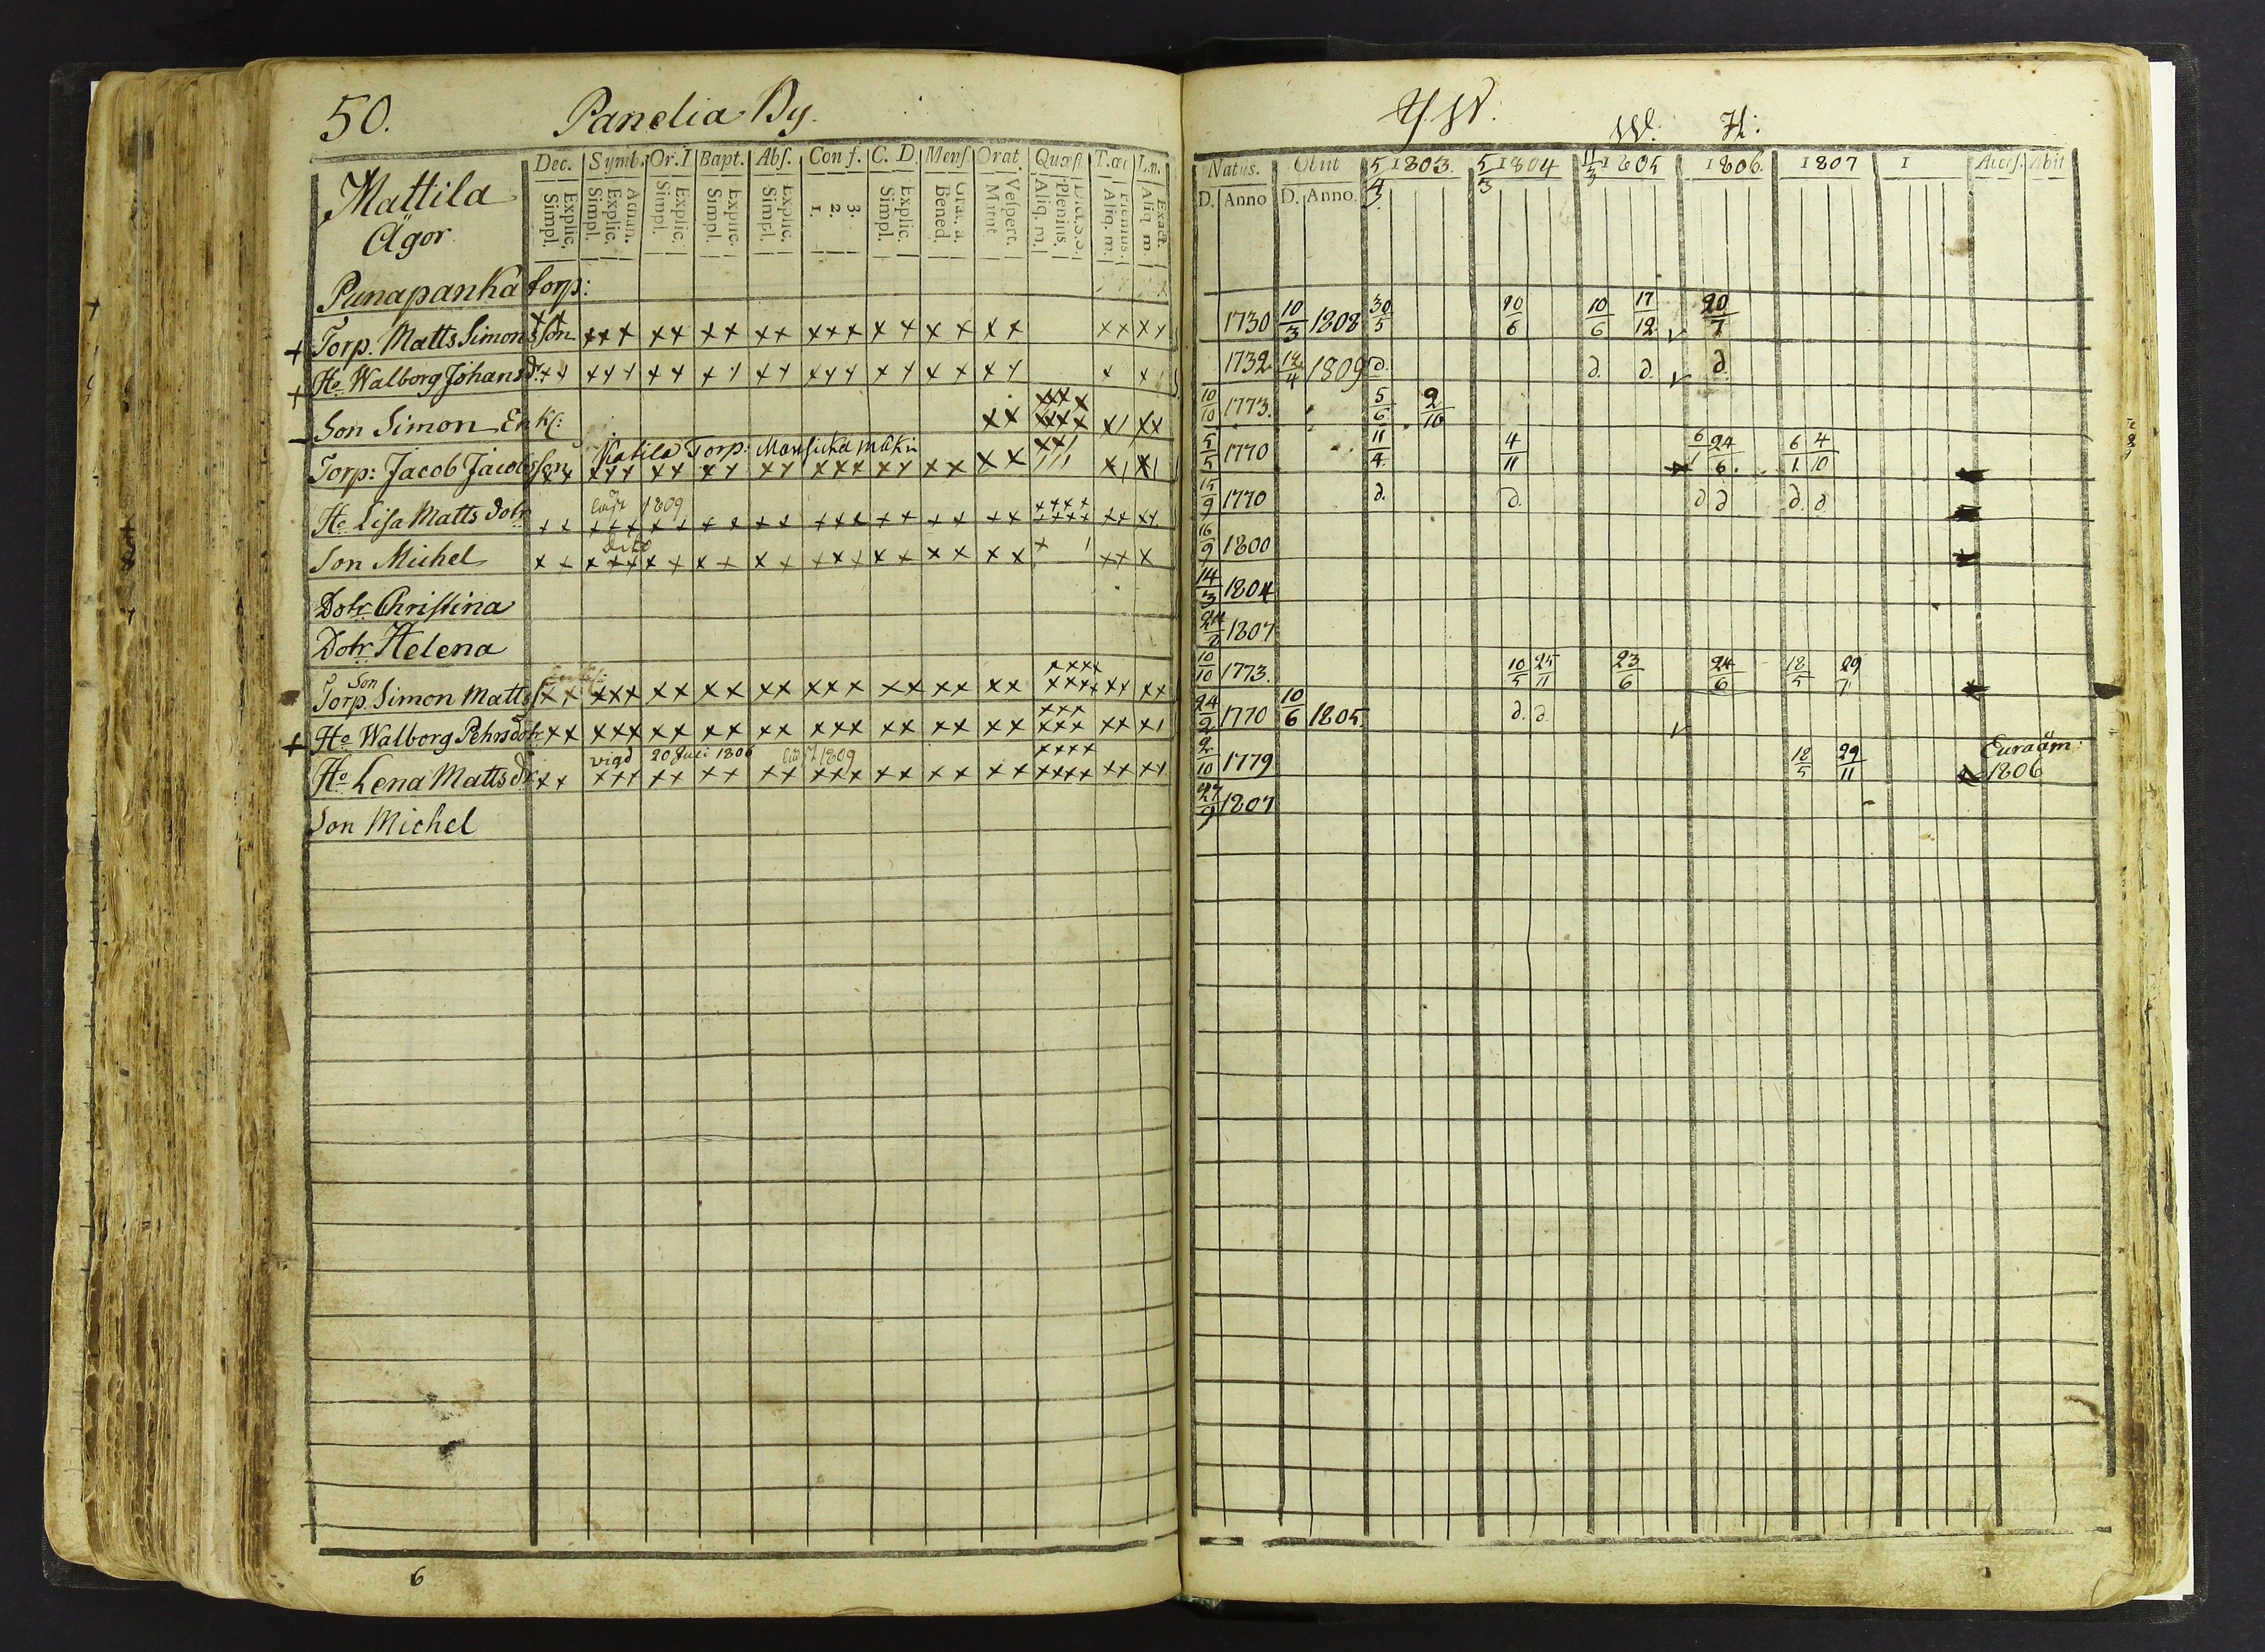 50. Panelia By.
Dec. Symb. Or. I Bapt. Abſ. Conf. C. D. Menſ Orat. Quæſt T.œc L.m.
Mattila
Ägor
Explic. Simpl. Athan. Explic. Simpl. Explic. Simpl. Explic. Simpl. Explic. Simpl. 3. 2. 1. Explic. Simpl. Grat. a. Bened. Veſpert. Matut. Plenius. Aliq. m. Plenius. Aliq. m. Exact. Aliq. m.
Punapanka torp:
Torp. Matts Simonsson
He Walborg Johansdr
Son Simon Enkl:
Matila Torp:
Torp: Jacob Jacobsson
1809
He Lisa Matts dotr
dito
Son Michel
Dotr Christina
Dotr Helena
Son
Torp. Simon Matts
He Walborg Pehrsdotr
vigd 20 Juli 1806 1809
He Lena Mattsdr
Son Michel
6
W. H:
Natus. Obiit 5/4 1803. 5/3 1804 11/3 1805 1806. 1807 1 Acceſ. Abit
D. Anno D. Anno.
1730 10/3 1808 30/5 20/6 10/6 17/12 20/7
1732 12/4 1809 d. d. d. d.
10/10 1773. 5/6 2/10
5/5 1770 11/4 4/11 6/1 24/6 6/1 4/10
15/9 1770 d. d. d d d. d
16/9 1800
14/3 1804
24/8 1807
10/10 1773. 10/5 25/11 23/6 24/6 18/5 29/11
24/2 1770 10/6 1805. d. d.
2/10 1779 18/5 29/11 Euraåm: 1806
27/9 1807